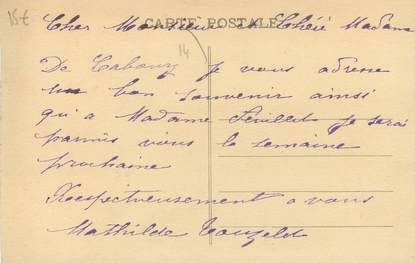 15€
CARTE POSTALE
Cher Monsieur et Chère Madame
14
De Cabourg je vous adresse
un bon souvenir ainsi
qu'a Madame Feuillet je serai
parmis vous la semaine
prochaine
Respectueusement a vous
Mathilde